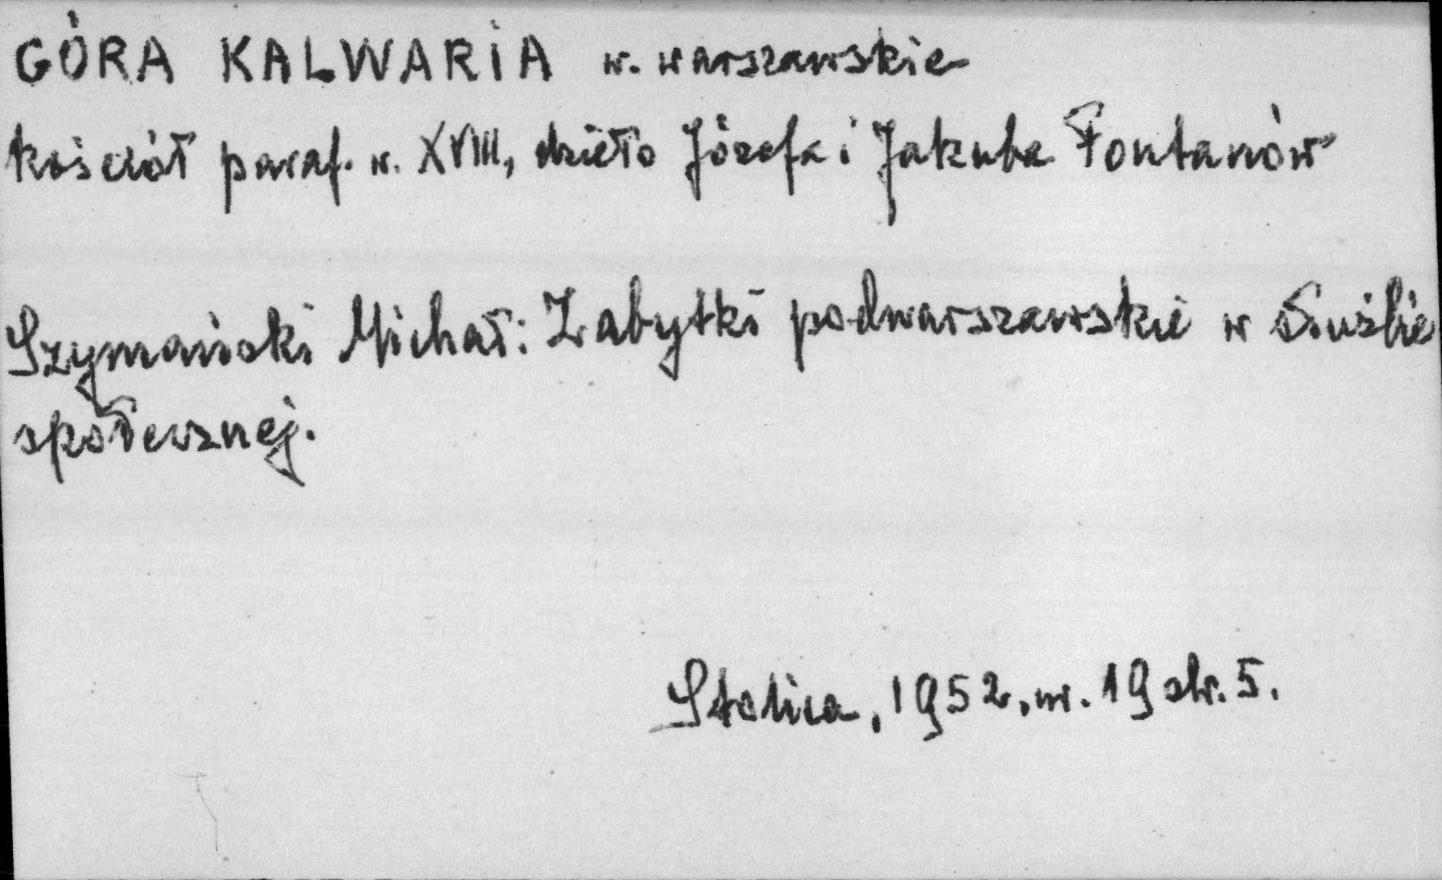 GÓRA KALWARIA w. warszawskie
kościół paraf. w. XVIII, dzieło Józefa i Jakuba Fontanów
Szymański Michał: Zabytki podwarszawskie w służbie
społecznej.
Stolica, 1952, nr. 19 str. 5.